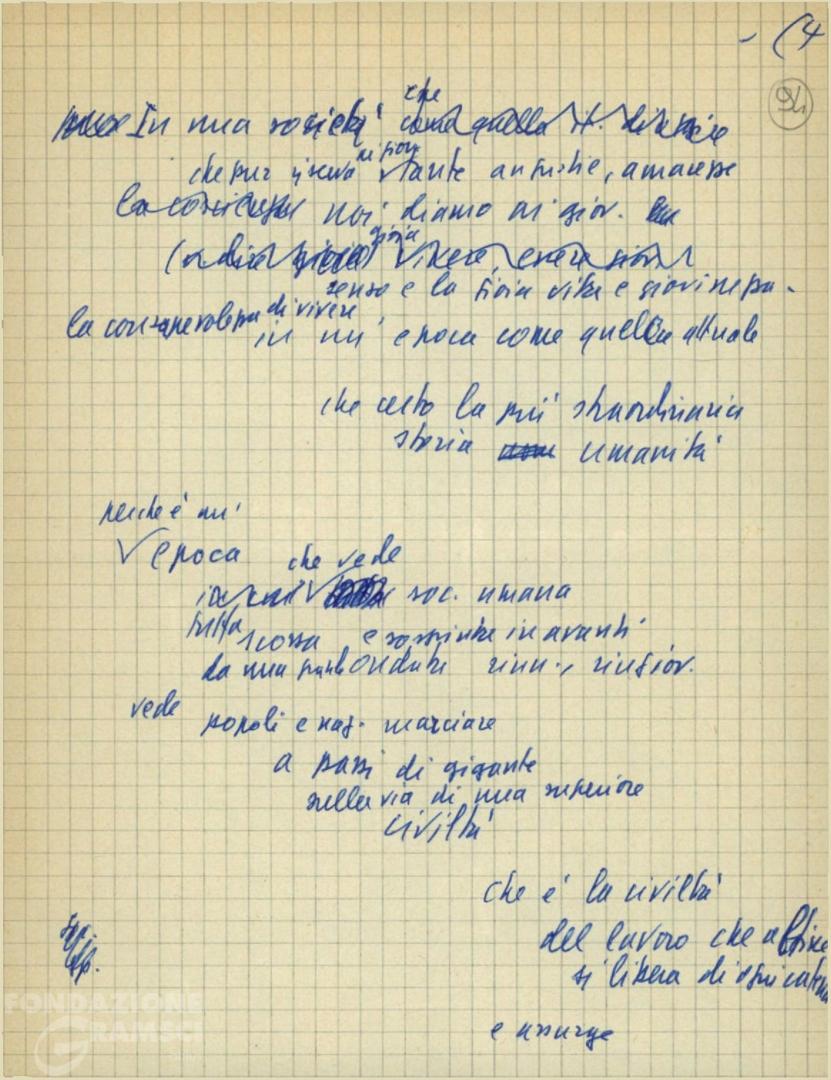 - (4
94
In una società che come quella it.
che pur riserva ai giov. tante angustie, amarezze
la noi diamo ai gior.
gioia vivere, essere
senso e la gioia vita e giovinezza.
la consapevolezza di vivere
in un' epoca come quella attuale
che certo la più straordinaria
storia umanità
perché è un'
epoca che vede
in cui soc. umana
tutta scossa e sospinta in avanti
da una grande ondata rinn., ringiov.
vede popoli e naz. marciare
a passi di gigante
sulla via di una superiore
civiltà
che è la civiltà
del lavoro che alfine
si libera di ogni catena
e assurge
FONDAZIONE
GRAMSCI